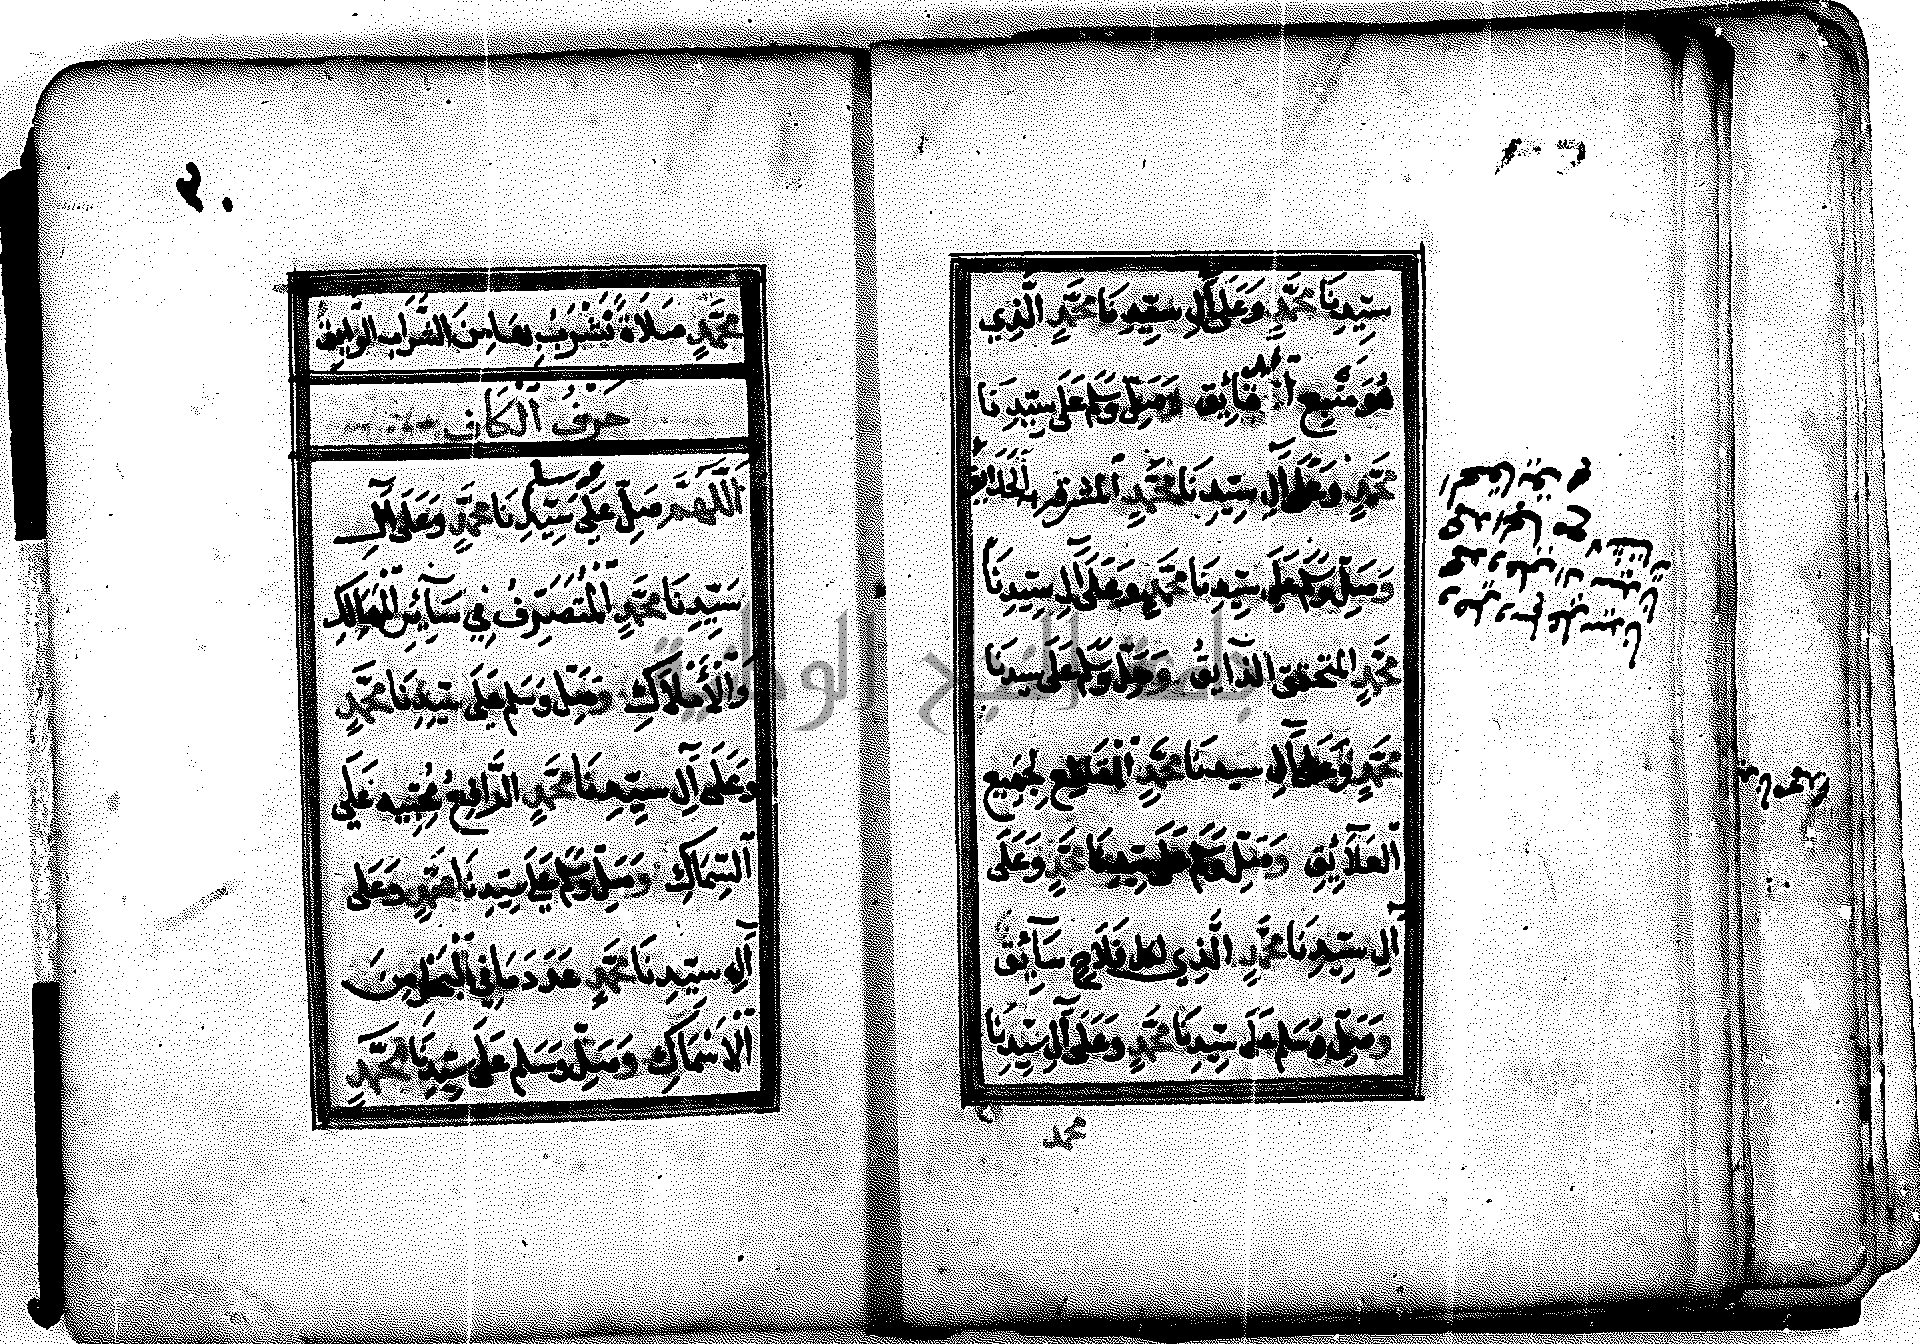 سَيِّدِنَا مُحَمَّدٍ وَعَلَى آلِ سَيِّدِنَا مُحَمَّدٍ الَّذِي
هُوَ مَنْبَعُ فَائِقٍ وَصَلِّ وَسَلِّمْ عَلَى سَيِّدِنَا
مُحَمَّدٍ وَعَلَى آلِ سَيِّدِنَا مُحَمَّدٍ الْمُشَرَّفِ الْخَلَائِقِ
وَصَلِّ وَسَلِّمْ عَلَى سَيِّدِنَا مُحَمَّدٍ وَعَلَى آلِ سَيِّدِنَا
مُحَمَّدٍ الْمُتَحَقِّقِ الذَّائِقِ وَصَلِّ وَسَلِّمْ عَلَى سَيِّدِنَا
مُحَمَّدٍ وَعَلَى آلِ سَيِّدِنَا مُحَمَّدٍ الْقَاطِعِ لِجَمِيعِ
الْعَلَائِقِ وَصَلِّ وَسَلِّمْ عَلَى سَيِّدِنَا مُحَمَّدٍ وَعَلَى
آلِ سَيِّدِنَا مُحَمَّدٍ الَّذِي لِكُلِّ فَلَاحٍ سَائِقٌ
وَصَلِّ وَسَلِّمْ عَلَى سَيِّدِنَا مُحَمَّدٍ وَعَلَى آلِ سَيِّدِنَا
محمد
مُحَمَّدٍ صَلَاةً نَشْرَبُ بِهَا مِنَ الشَّرَابِ الرَّائِقِ
حَرْفُ الْكَافِ
اللَّهُمَّ صَلِّ وسلم عَلَى سَيِّدِنَا مُحَمَّدٍ وَعَلَى آلِ
سَيِّدِنَا مُحَمَّدٍ الْمُتَصَرِّفِ فِي سَائِرِ الْمَمَالِكِ
وَالْأَمْلَاكِ وَصَلِّ وَسَلِّمْ عَلَى سَيِّدِنَا مُحَمَّدٍ
وَعَلَى آلِ سَيِّدِنَا مُحَمَّدٍ الرَّافِعِ مُحِبِّيهِ عَلَى
السِّمَاكِ وَصَلِّ وَسَلِّمْ عَلَى سَيِّدِنَا مُحَمَّدٍ وَعَلَى
آلِ سَيِّدِنَا مُحَمَّدٍ عَدَدَ مَا فِي الْبَحْرِ مِنَ
الْأَسْمَاكِ وَصَلِّ وَسَلِّمْ عَلَى سَيِّدِنَا مُحَمَّدٍ
جامعة النجاح الوطنية